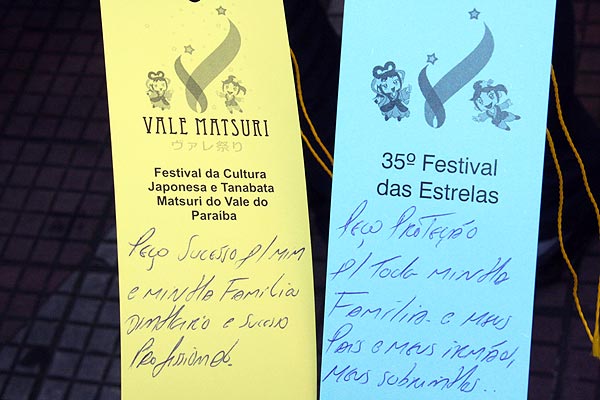 VALE MATSURI
ヴァレ祭り
Festival da Cultura
Japonesa e Tanabata
Matsuri do Vale do
Paraíba
Peço Sucesso p/ mim
e minha Família
Dinheiro e sucesso
Profissional.
35º Festival
das Estrelas
Peço Proteção
p/ Toda minha
Família e meus
Pais e meus irmãos,
meus sobrinhos..